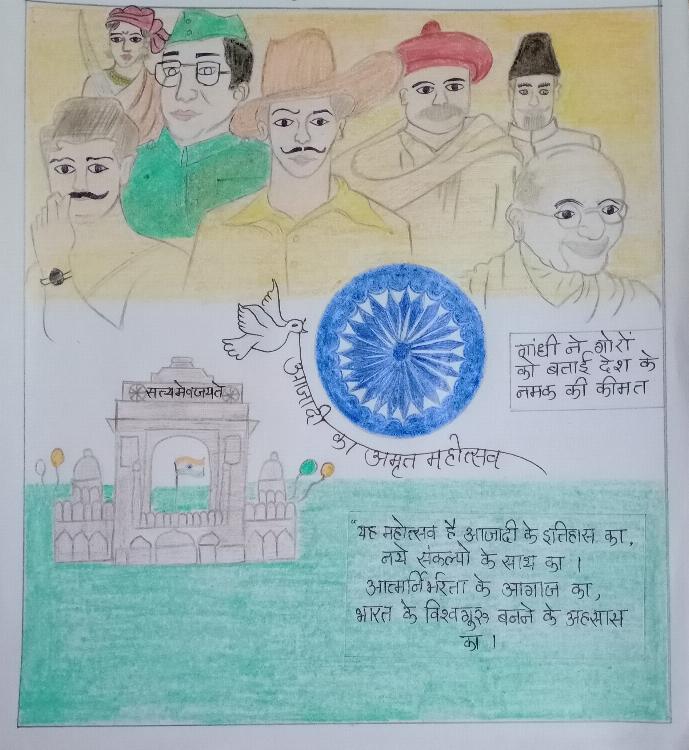 सत्यमेवजयते
आजादी का अमृत महोत्सव
गांधी ने गोरों
को बताई देश के
नमक की कीमत
"यह महोत्सव है आजादी के इतिहास का,
नये संकल्पो के साथ का ।
आत्मर्निभरता के आगाज का,
भारत के विश्वगुरू बनने के अहसास
का ।